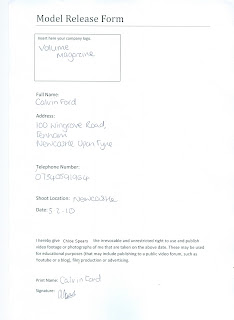 Model Release Form
Insert here your company logo
Volume
Magazine
Full Name:
Calvin Ford
Address:
100 Wingrove Road,
Fenham
Newcastle Upon Tyne
Telephone Number:
Shoot Location: Newcastle
Date: 5.2.10
I hereby give Chloe Speary the irrevocable and unrestricted right to use and publish
video footage or photographs of me that are taken on the above date. These may be used
for educational purposes (that may include publishing to a public video forum, such as
Youtube or a blog), film production or advertising.
Print Name: Calvin Ford
Signature: